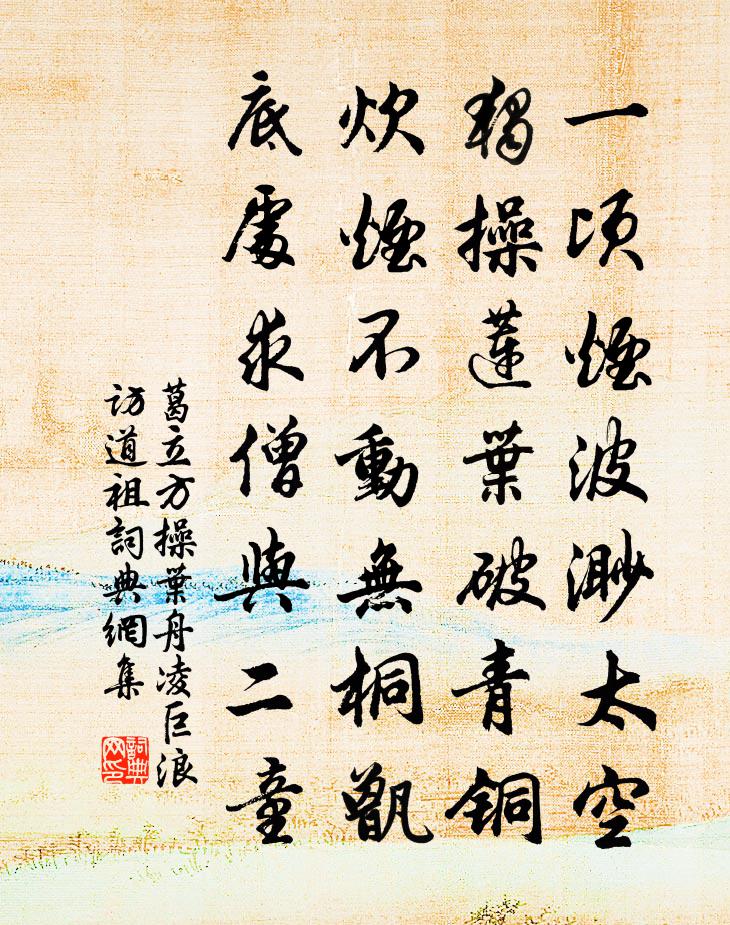 一頃煙波渺太空
獨操蓮葉破青銅
炊煙不動無桐甑
底處求僧與二童
葛立方操葉舟凌巨浪
訪道祖詞典網集
詞典网印